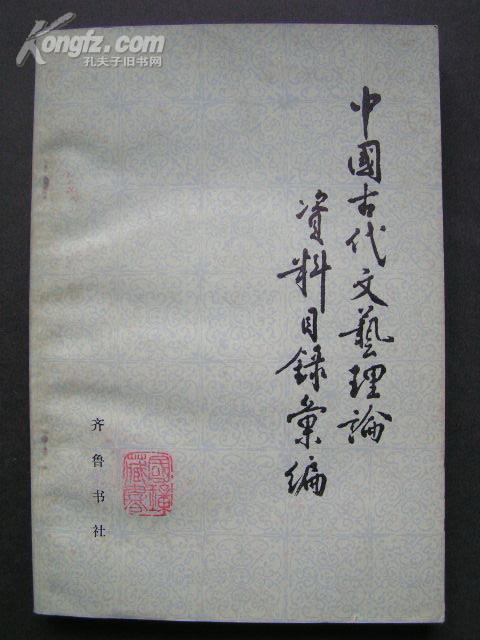 Kongfz.com
孔夫子旧书网
中國古代文藝理論
資料目録彙編
齐鲁书社